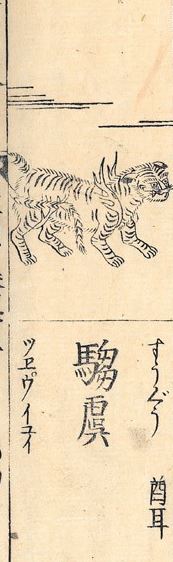 すうぐう　酋耳
騶虞
ツヱ゚ウイユイ